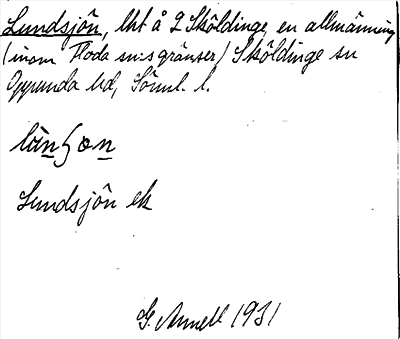 Lundsjön, lht å 2 Sköldinge, en allmänning
(inom Floda sn:s gränser) Sköldinge sn
Oppunda hd, Söml. l.
Lundsjön ek
G. Annell 1931